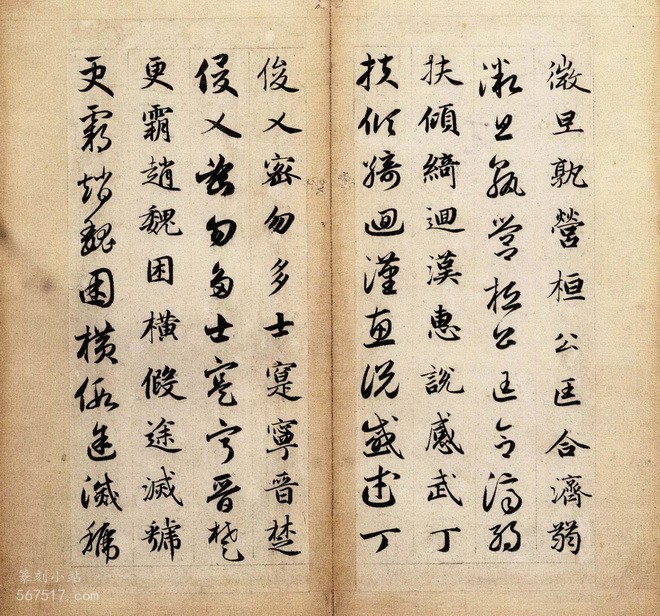 微旦孰營桓公匡合濟弱
微旦孰營桓公匡合濟弱
扶傾綺迴漢惠說感武丁
扶傾綺迴漢惠說感武丁
俊乂密勿多士寔寧晉楚
俊乂密勿多士寔寧晉楚
更霸趙魏困橫假途滅虢
更霸趙魏困橫假途滅虢
篆刻小站
567517.com